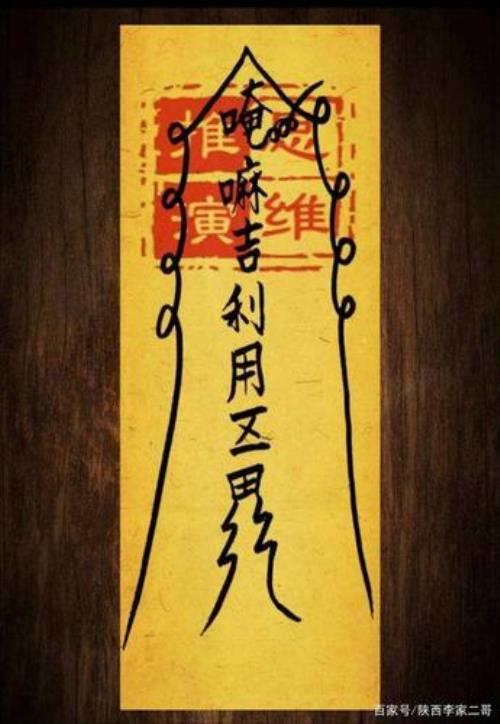 唵
嘛
吉
利
用
思维
推演
百家号/陕西李家二哥